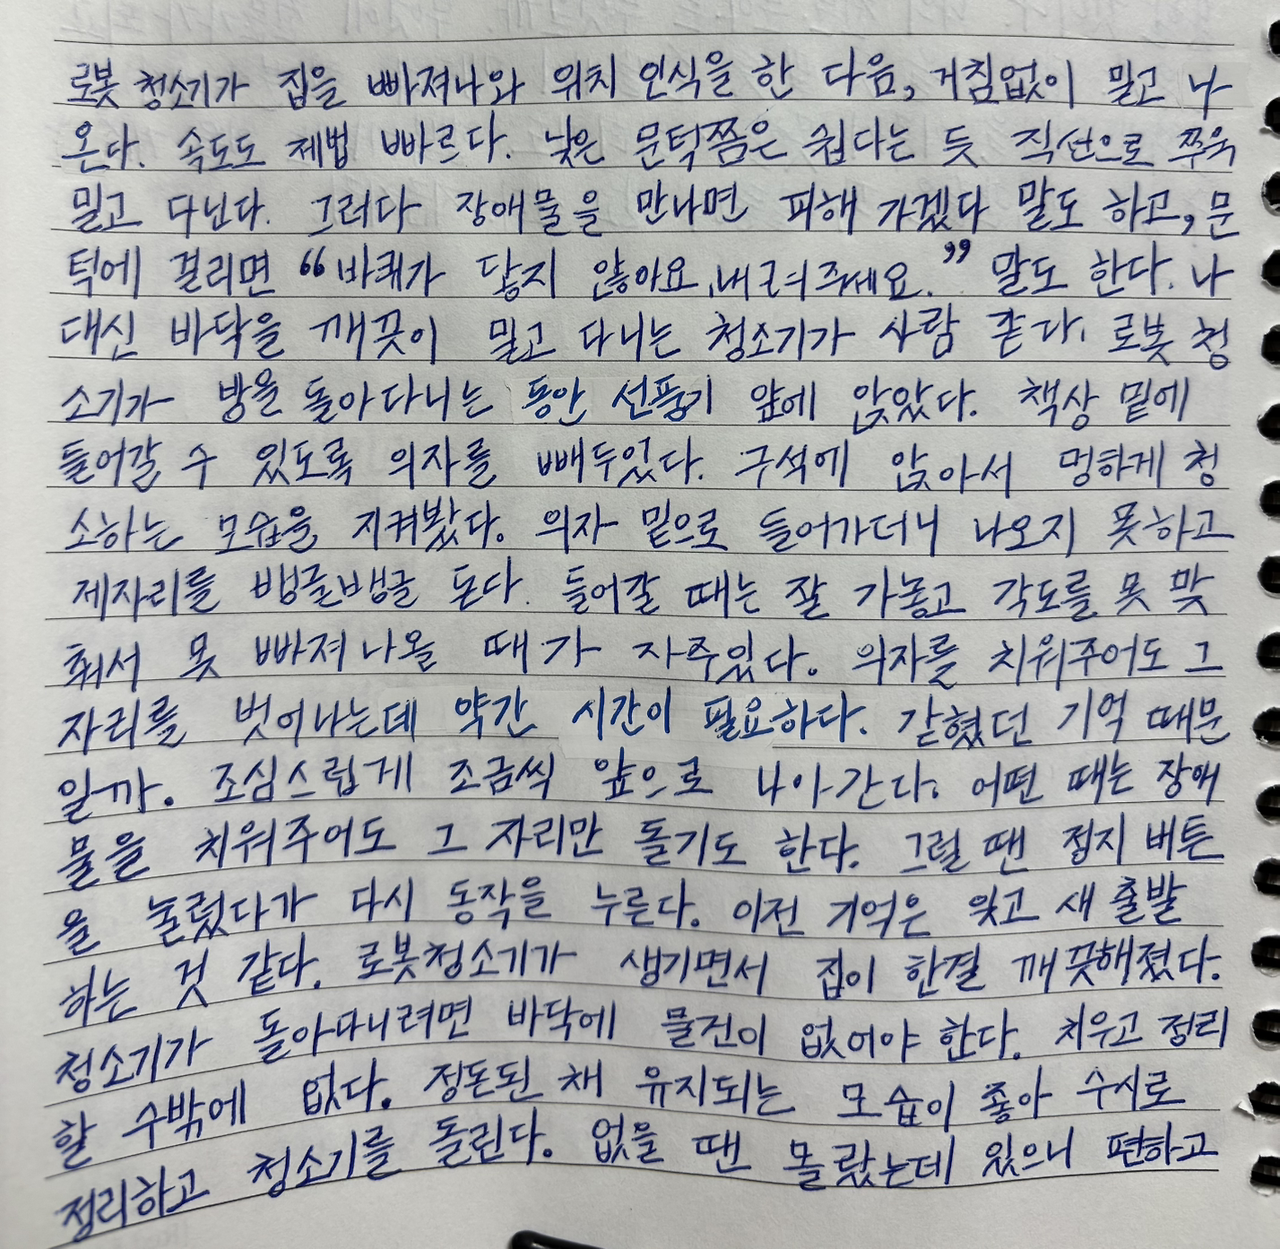 로봇 청소기가 집을 빠져나와 위치 인식을 한 다음, 거침없이 밀고 나
온다. 속도도 제법 빠르다. 낮은 문턱쯤은 쉽다는 듯 직선으로 쭈욱
밀고 다닌다. 그러다 장애물을 만나면 피해 가겠다 말도 하고, 문
턱에 걸리면 “바퀴가 닿지 않아요, 내려주세요.” 말도 한다. 나
대신 바닥을 깨끗이 밀고 다니는 청소기가 사람 같다. 로봇 청
소기가 방을 돌아다니는 동안 선풍기 앞에 앉았다. 책상 밑에
들어갈 수 있도록 의자를 빼두었다. 구석에 앉아서 멍하게 청
소하는 모습을 지켜봤다. 의자 밑으로 들어가더니 나오지 못하고
제자리를 뱅글뱅글 돈다. 들어갈 때는 잘 가놓고 각도를 못 맞
춰서 못 빠져나올 때가 자주있다. 의자를 치워주어도 그
자리를 벗어나는데 약간 시간이 필요하다. 갇혔던 기억 때문
일까. 조심스럽게 조금씩 앞으로 나아간다. 어떤 때는 장애
물을 치워주어도 그 자리만 돌기도 한다. 그럴 땐 정지 버튼
을 눌렀다가 다시 동작을 누른다. 이전 기억은 잊고 새 출발
하는 것 같다. 로봇청소기가 생기면서 집이 한결 깨끗해졌다.
청소기가 돌아다니려면 바닥에 물건이 없어야 한다. 치우고 정리
할 수밖에 없다. 정돈된 채 유지되는 모습이 좋아 수시로
정리하고 청소기를 돌린다. 없을 땐 몰랐는데 있으니 편하고